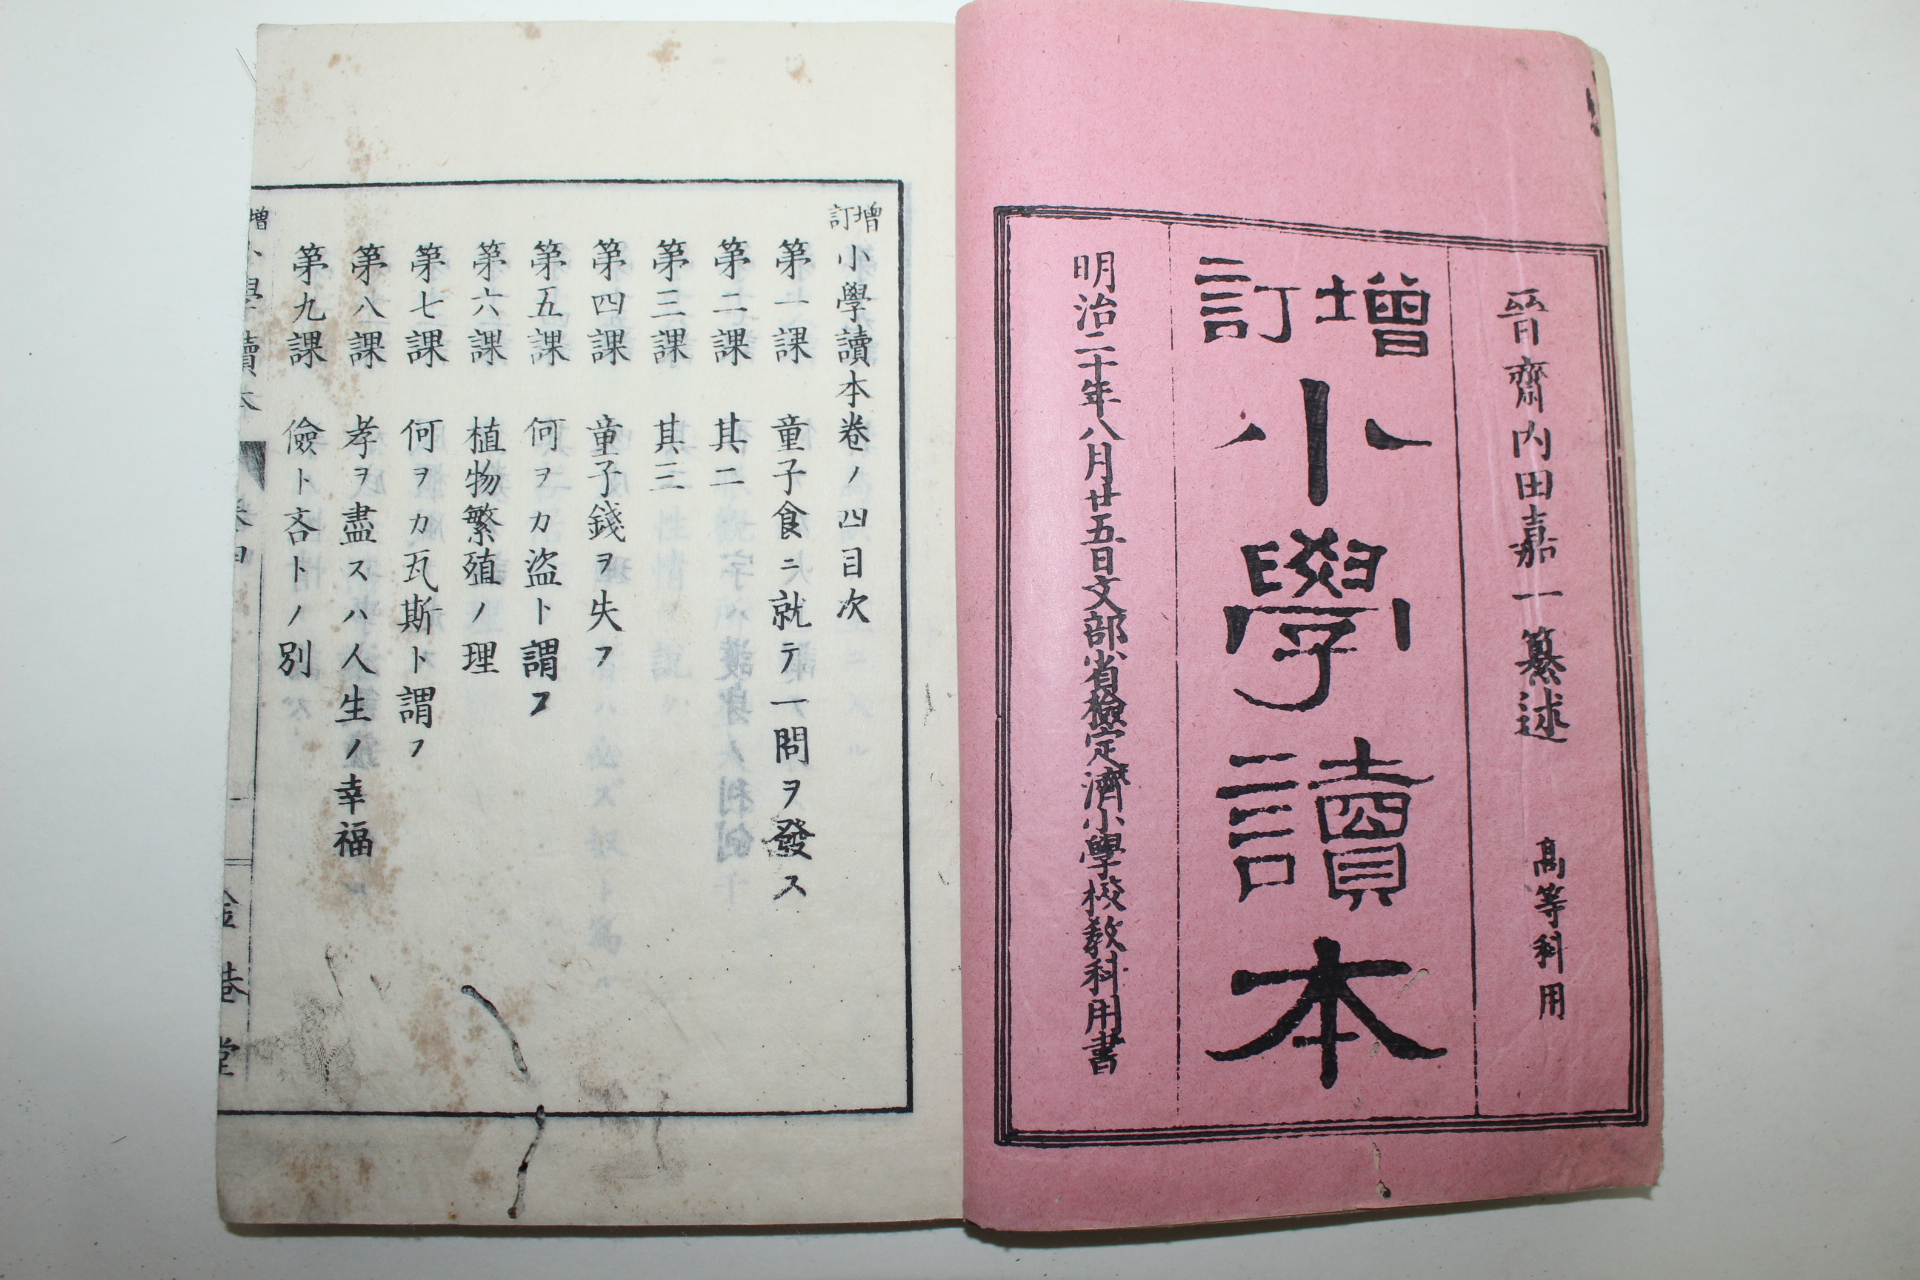 晉齋內田嘉一纂述　高等科用
增訂
小學讀本
明治二十年八月廿五日文部省檢定濟小學校敎科用書
增訂小學讀本卷ノ四目次
第一課　童子食ニ就テ一問ヲ發ス
第二課　其二
第三課　其三
第四課　童子錢ヲ失フ
第五課　何ヲカ盜ト謂フ
第六課　植物繁殖ノ理
第七課　何ヲカ瓦斯ト謂フ
第八課　孝ヲ盡スハ人生ノ幸福
第九課　儉ト吝トノ別
增　小學讀本　卷四　一　金港堂